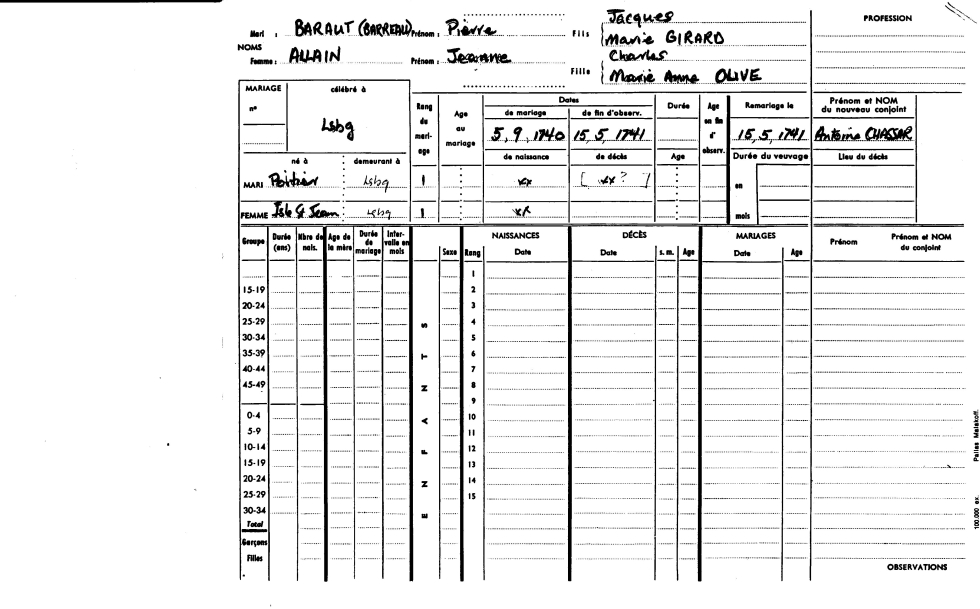 Jacques
Mari : BARAUT (BARREAU) Prénom : Pierre Fils Marie GIRARD
NOMS Charles
Femme : ALLAIN Prénom : Jeanne Fille Marie Anne OLIVE
PROFESSION
MARIAGE célébré à
n°
Lsbg
Rang du mari- age
Age au mariage
Dates
de mariage de fin d'observ.
5, 9, 1740 15, 5, 1741
Durée
Age en fin d' observ.
Remariage le
15, 5, 1741
Prénom et NOM du nouveau conjoint
Antoine CHASSAR
né à demeurant à de naissance de décès Age Durée du veuvage Lieu du décès
MARI Poitier Lsbg 1 xx [ xx ? ] en
FEMME Isle St Jean Lsbg 1 xx mois
Groupe Durée (ans) Nbre de nais. Age de la mère Durée de mariage Inter- valle en mois
ENFANTS
Sexe Rang NAISSANCES Date DÉCÈS Date s. m. Age MARIAGES Date Age Prénom Prénom et NOM du conjoint
1
15-19 2
20-24 3
25-29 4
30-34 5
35-39 6
40-44 7
45-49 8
9
0-4 10
5-9 11
10-14 12
15-19 13
20-24 14
25-29 15
30-34
Total
Garçons
Filles
OBSERVATIONS
100,000 ex.